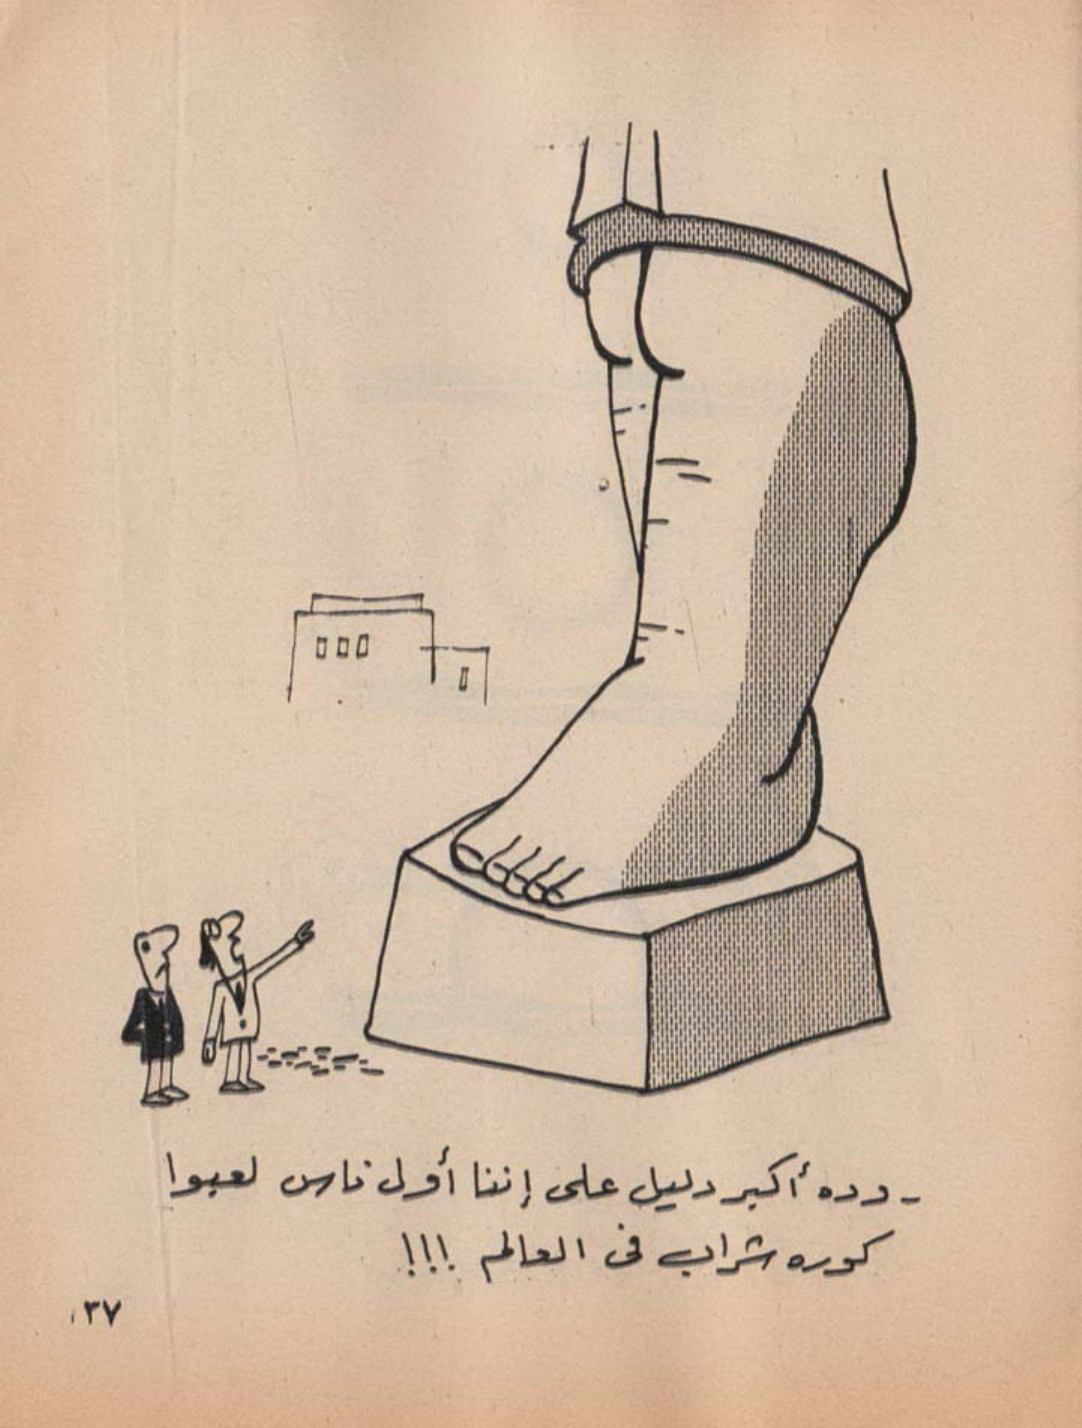 - وده أكبر دليل على إننا أول ناس لعبوا
كوره شراب فى العالم !!!
١٣٧